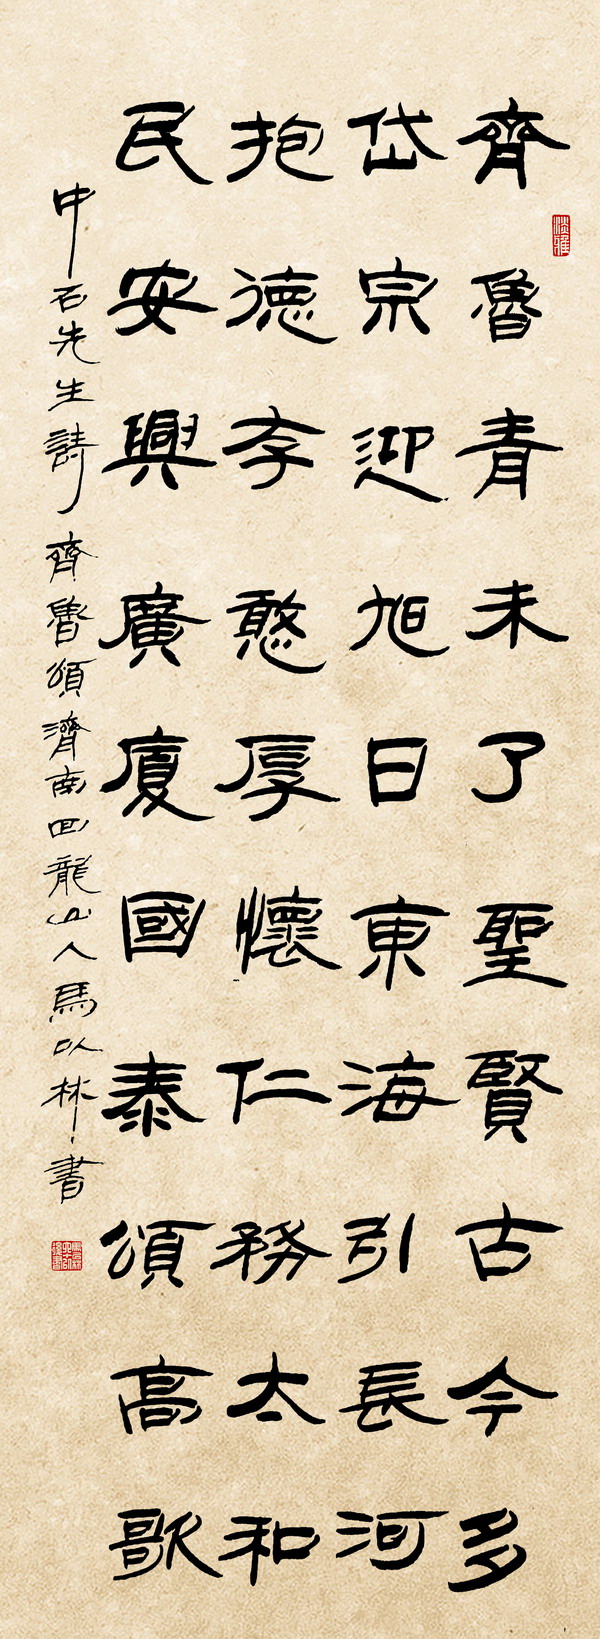 齊魯青未了聖賢古今多
岱宗迎旭日東海引長河
抱德孝憨厚懷仁務太和
民安興廣廈國泰頌高歌
中石先生詩齊魯頌濟南回龍山人馬以林書
淡雅